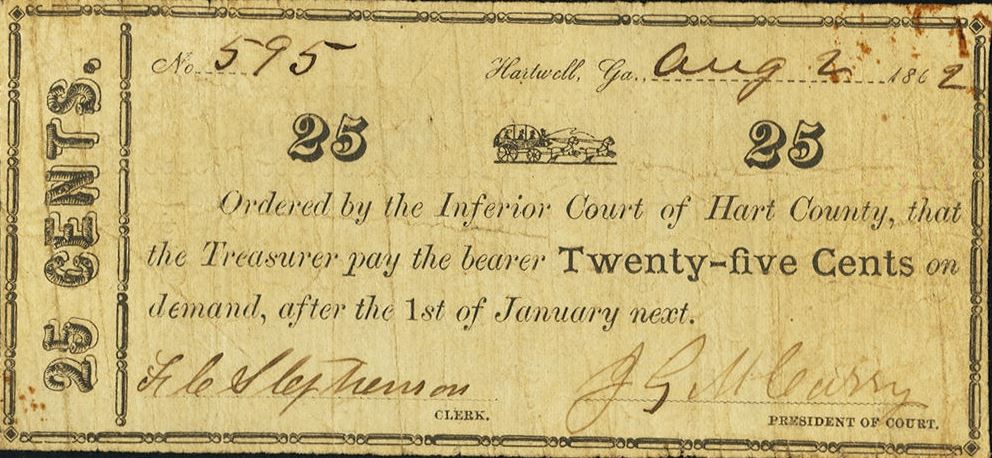 25 CENTS.
No. 595 Hartwell, Ga., Aug 2 1862
25 25
Ordered by the Inferior Court of Hart County, that
the Treasurer pay the bearer Twenty-five Cents on
demand, after the 1st of January next.
F. C. Stephenson J G McCurry
CLERK. PRESIDENT OF COURT.